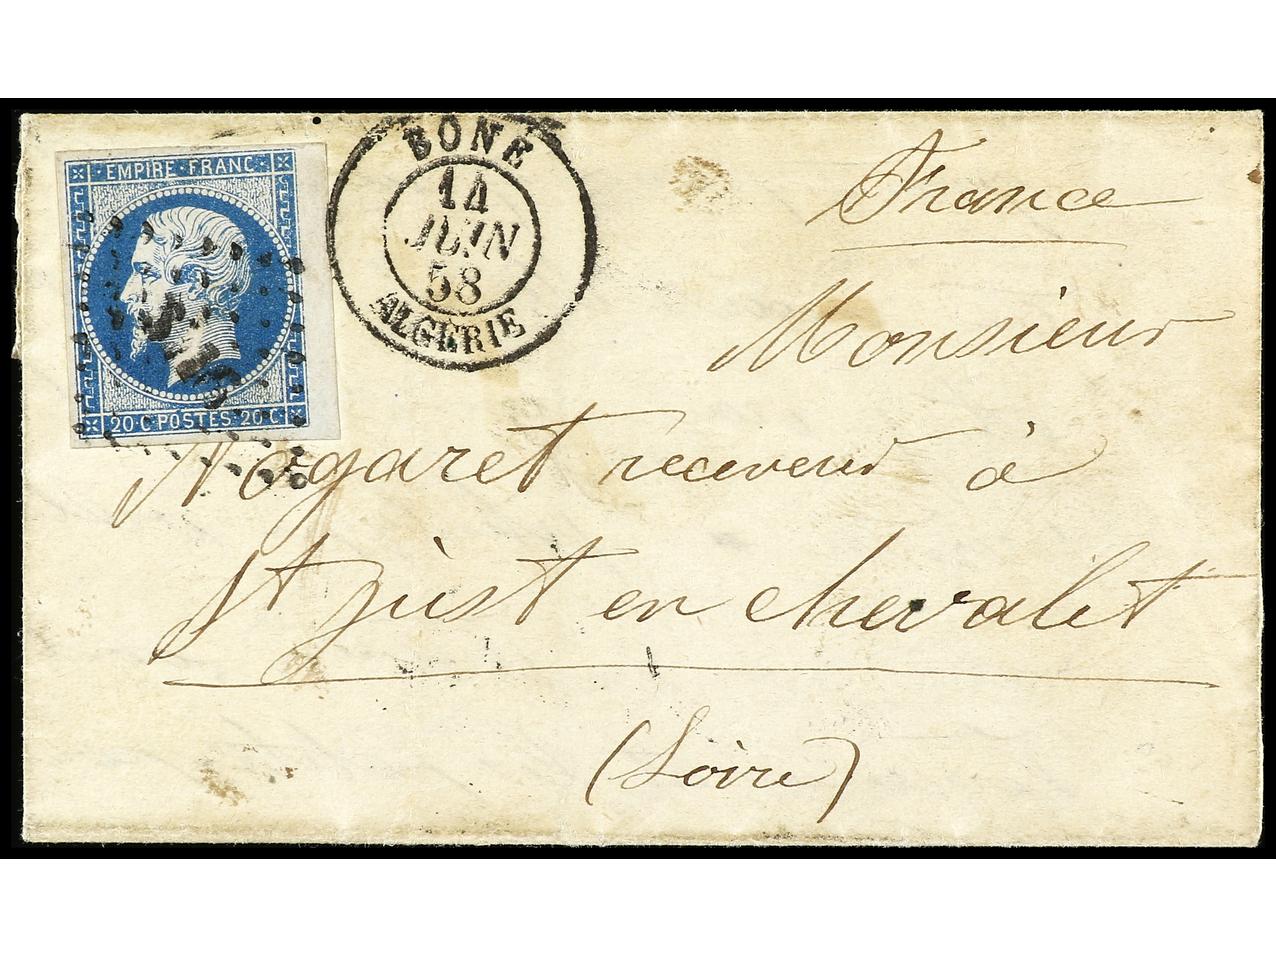 EMPIRE · FRANC ·
20 · C · POSTES · 20 C ·
BONE
14
JUIN
58
ALGÉRIE
France
Monsieur
Nogaret receveur à
St just en chevalet
(Loire)